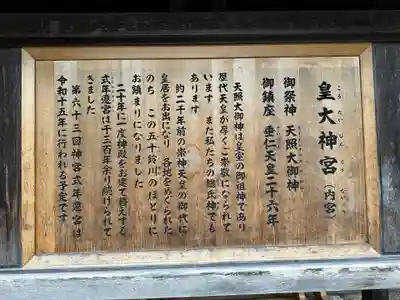 皇大神宮（内宮）
こうたいじんぐう ないくう
御祭神 天照大御神
御鎮座 垂仁天皇二十六年
天照大御神は皇室の御祖神であり
歴代天皇が厚くご崇敬になられて
います また私たちの総氏神でも
あります
約二千年前の崇神天皇の御代に
皇居をお出になり 各地をめぐられた
のち この五十鈴川のほとりに
お鎮まりになりました
二十年に一度神殿をお建て替えする
式年遷宮は千三百年余り続けられて
きました
第六十三回神宮式年遷宮は
令和十五年に行われる予定です